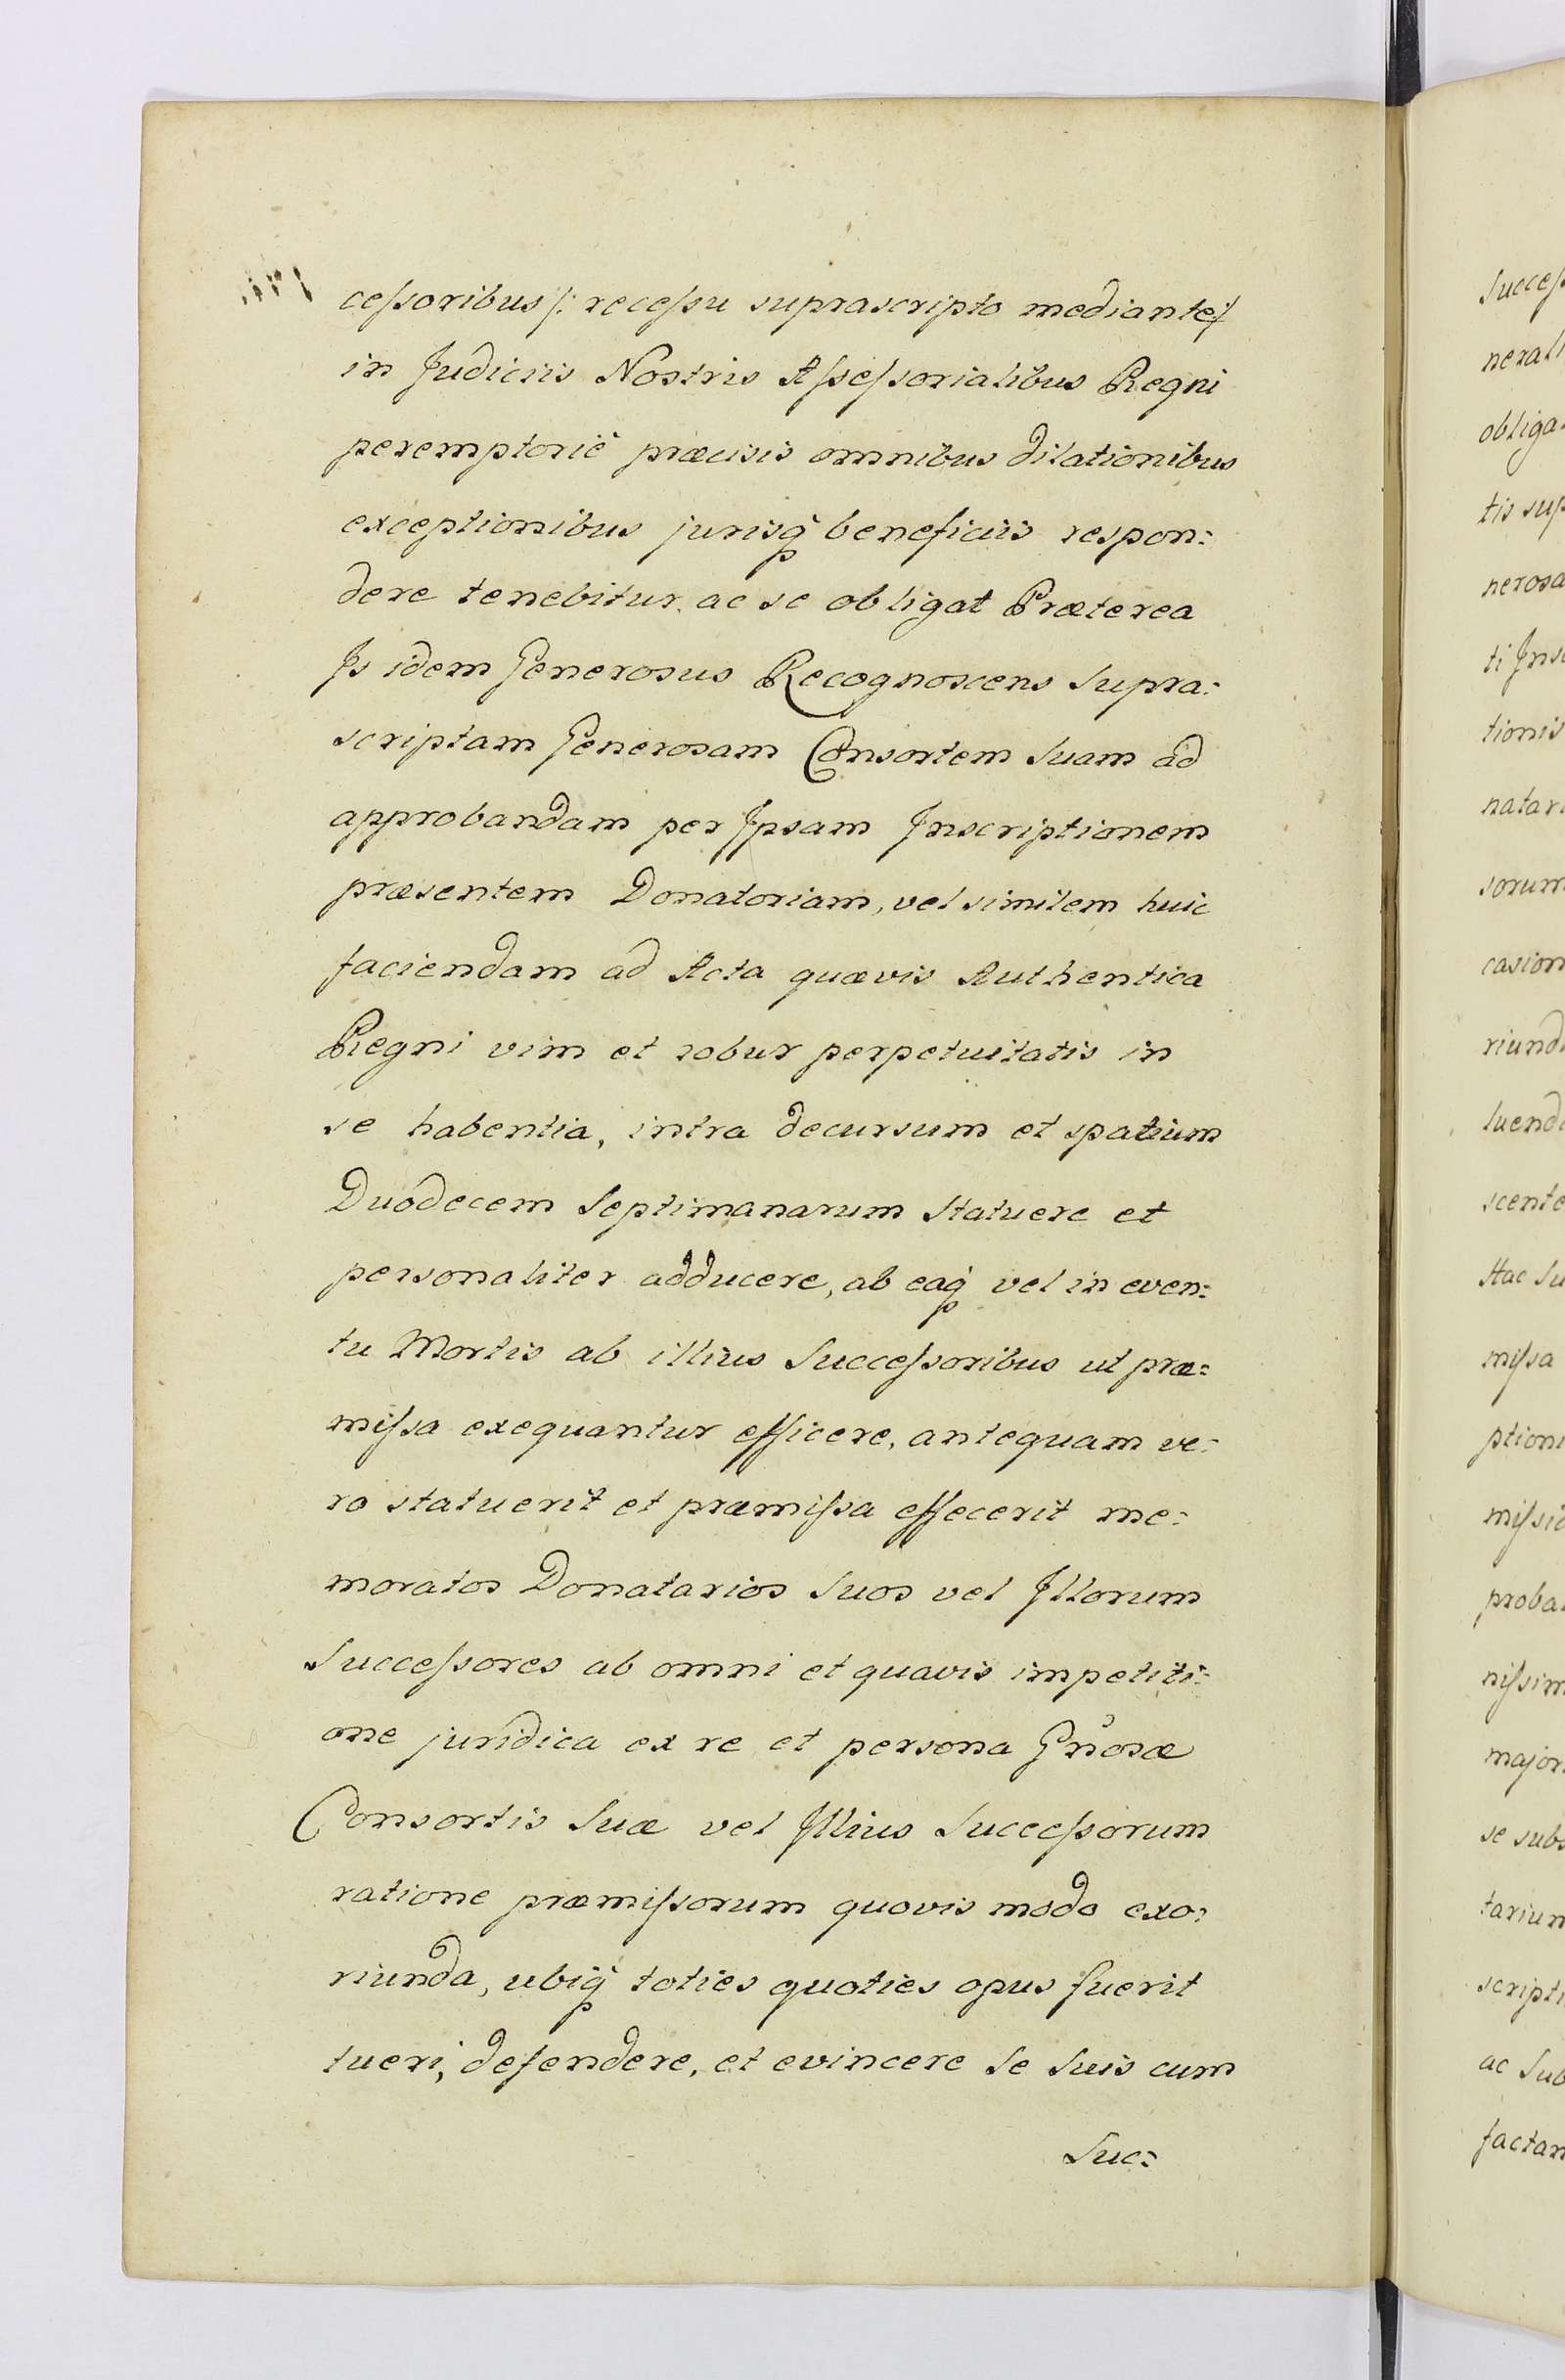 ceſsoribus /: receſsu suprascripto mediante :/
in Judiciis Nostris Aſseſsorialibus Regni
peremptoriè præcisis omnibus dilationibus
exceptionibus jurisq̃ beneficiis respon:
dere tenebitur. ac se obligat Præterea
Js idem Generosus Recognoscens Supra:
scriptam Generosam Consortem Suam ad
approbandam per Jpsam Jnscriptionem
præsentem Donatoriam, vel similem huic
faciendam ad Acta quævis Authentica
Regni vim et robur perpetuitatis in
se habentia, intra decursum et spatium
Duodecem Septimanarum Statuere et
personaliter adducere, ab eaq̃ vel in even:
tu Mortis ab illius Succeſsoribus ut præ:
miſsa exequantur efficere, antequam ve:
ro statuerit et præmiſsa effecerit me:
moratos Donatarios Suos vel Jllorum
Succeſsores ab omni et quavis impetiti:
one juridica ex re et persona Gñosæ
Consortis Suæ vel Jllius Succeſsorum
ratione præmiſsorum quovis modo exo:
riunda, ubiq̃ toties quoties opus fuerit
tueri, defendere, et evincere Se Suis cum
Suc:
Succeſs
nerali
obliga
tis sup
nerosa
ti Jns
tionis
natar
sorum
casion
riund
luend
scente
Hac Su
miſsa
ption
miſsio
proba
niſsim
major
se sub
tarium
scripti
ac Sub
factam